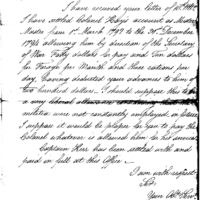 I have received your letter of
I have settled Colonel Hays account as Muster
Master from 1st March 1793 to the 31st December
1794 allowing him by direction of the Secretary
of War Fifty dollars pr pay and Ten dollars
for Forage per Month and three rations per
day. Having deducted your advances to him of
two hundred dollars. I should suppose this to be
a very liberal allowance
militia were not constantly employed in
I suppose it would be proper for you to pay the
Colonel whatever is allowed him to his
Captain Kerr has been settled with and
paid in full at this Office.
I am with respect
Your